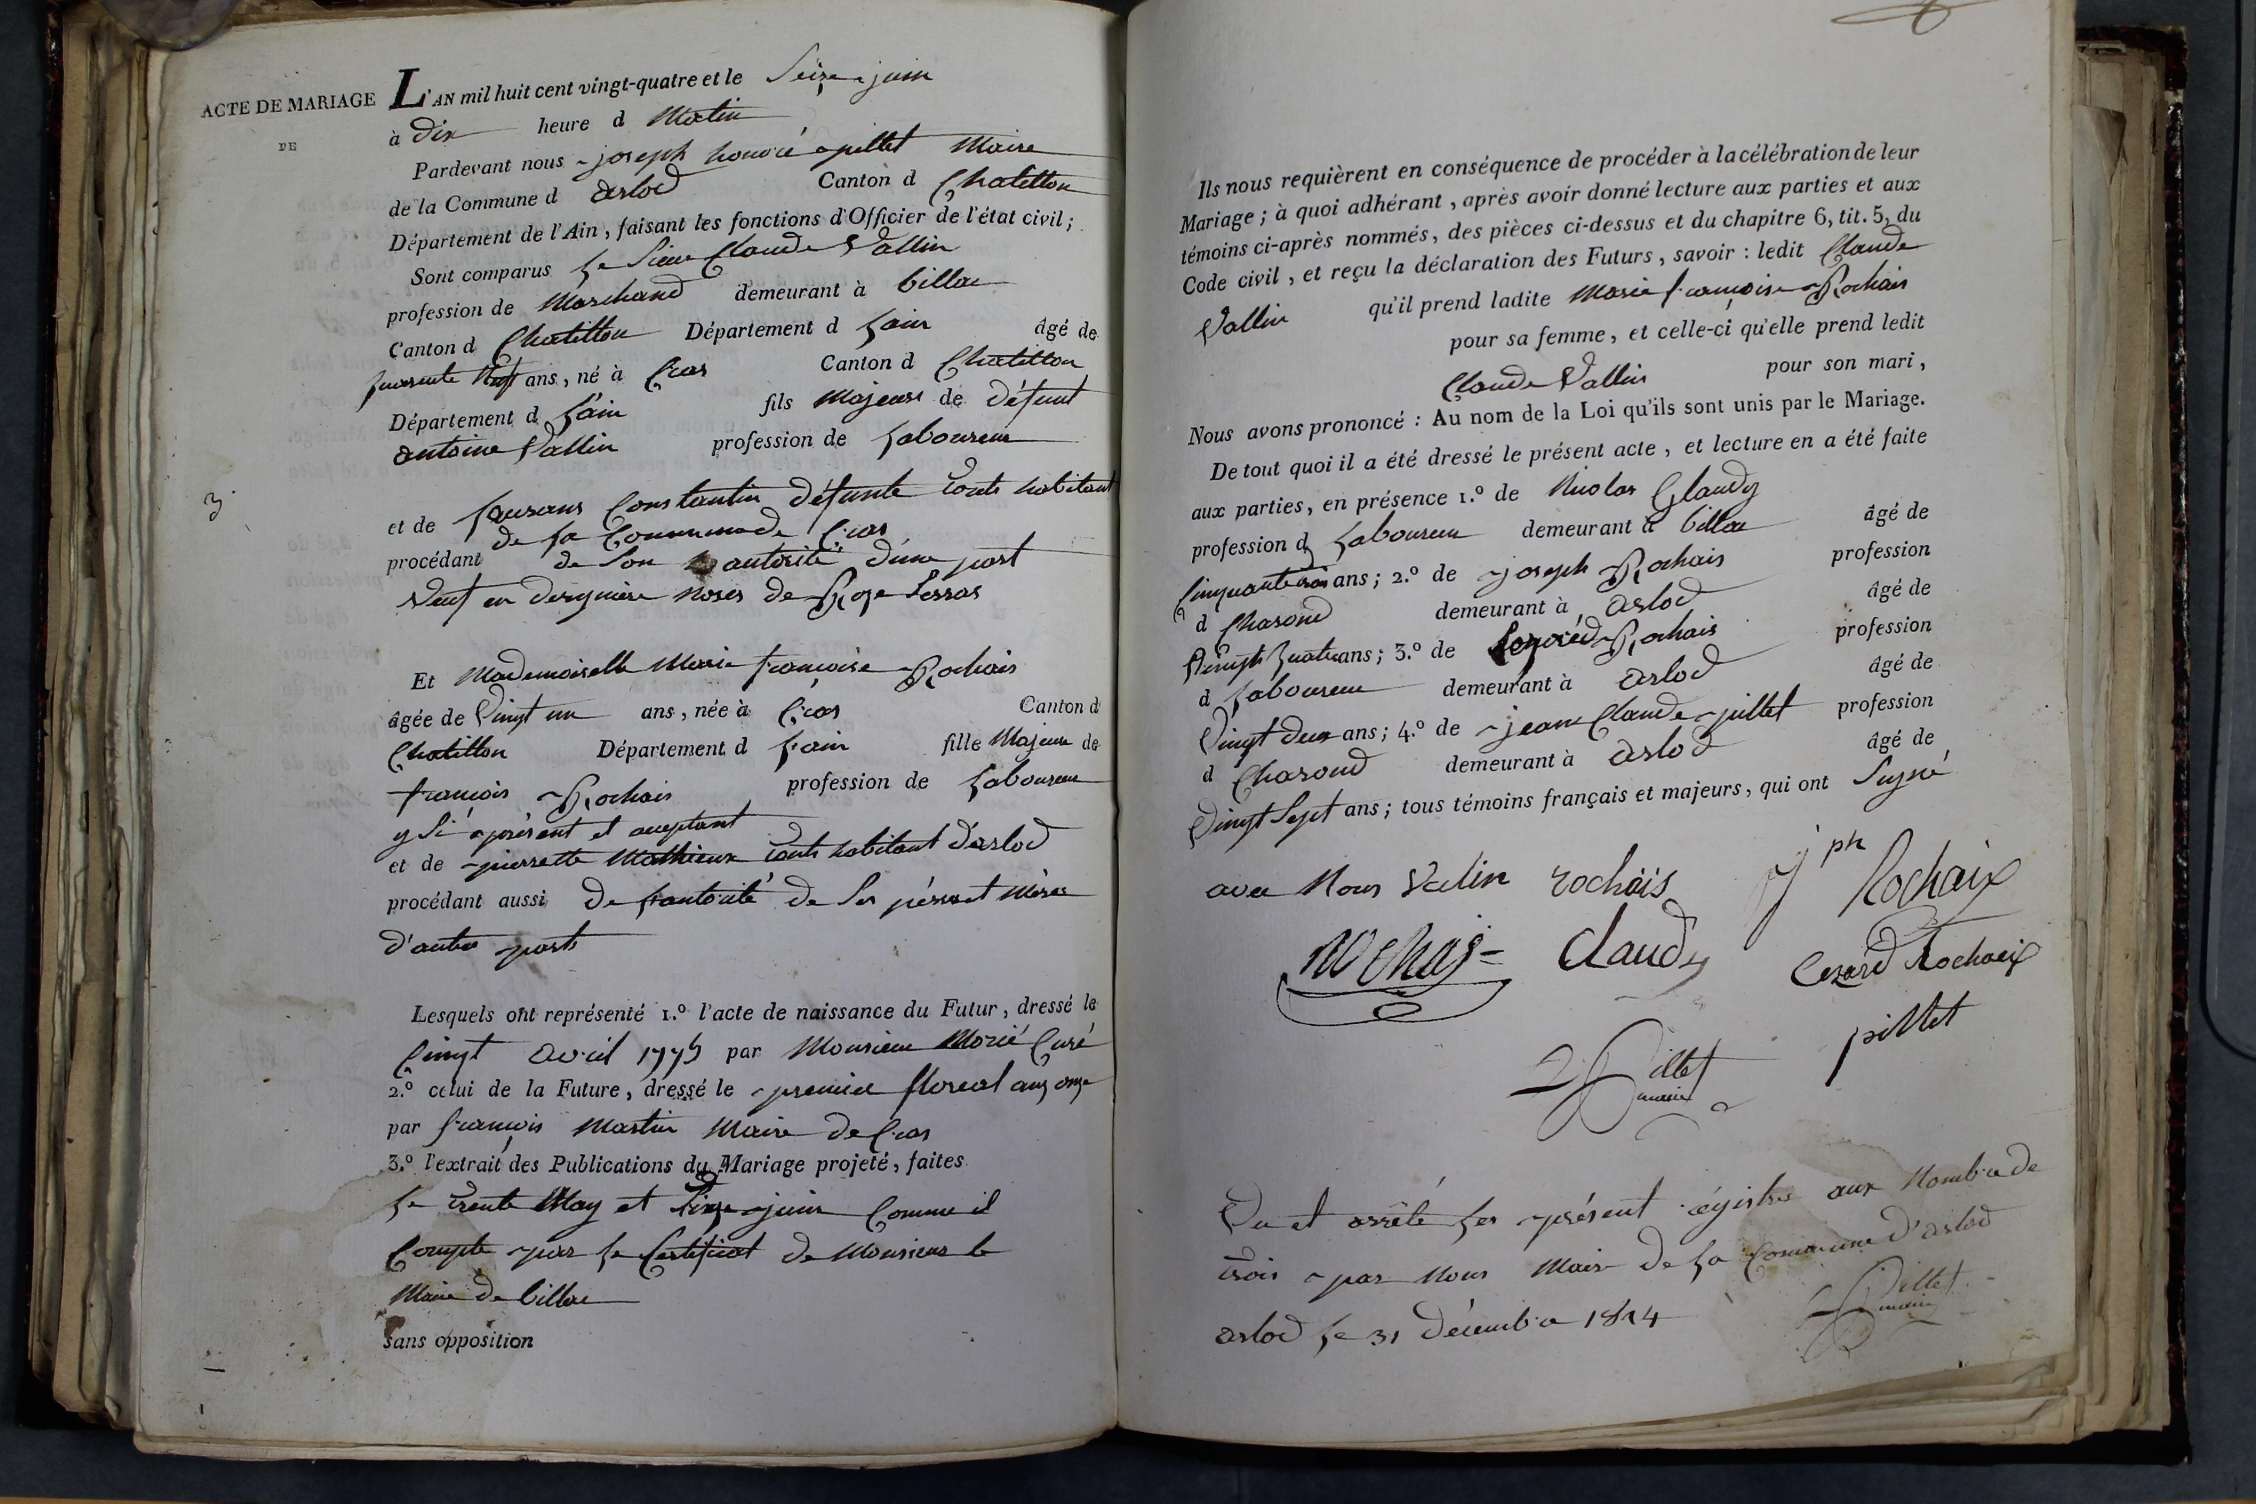 ACTE DE MARIAGE
DE
3.
L'AN mil huit cent vingt-quatre et le Seize juin
à dix heure d Matin
Pardevant nous joseph honoré pillet Maire
de la Commune d arlod Canton d Chatillon
Département de l'Ain, faisant les fonctions d'Officier de l'état civil;
Sont comparus Le Sieur Claude Vallin
profession de Marchand demeurant à billac
Canton d Chatillon Département d Lain âgé de
quarente Neuf ans, né à Cras Canton d Chatillon
Département d Lain fils Majeur de défunt
antoine Vallin profession de Laboureur
et de Constantin défunte touts habitant
de La Commune de Cras
procédant de Son autorité d'une part
Veuf en dernière Noses de Roze
Et Mademoiselle Marie francoise Rochais
âgée de Vingt un ans, née à Cras Canton d
Chatillon Département d Lain fille Majeure de
francois Rochais profession de Laboureur
y Si présent et aceptant
et de pierrette Mathieux touts habitant d'arlod
procédant aussi de Lautorité de Ses péres et Mères
d'autre part
Lesquels ont représenté 1.º l'acte de naissance du Futur, dressé le
Vingt avril 1775 par Monsieur Morié Curé
2.º celui de la Future, dressé le premier floreal anz onze
par francois Martin Maire de Cras
3.º l'extrait des Publications du Mariage projeté, faites
Le trente May et Sixe juin Comme il
Compte par Le Certificat de Monsieur le
Maire de billac
sans opposition
Ils nous requièrent en conséquence de procéder à la célébration de leur
Mariage; à quoi adhérant, après avoir donné lecture aux parties et aux
témoins ci-après nommés, des pièces ci-dessus et du chapitre 6, tit. 5, du
Code civil, et reçu la déclaration des Futurs, savoir: ledit Claude
Vallin qu'il prend ladite Marie francoise Rochais
pour sa femme, et celle-ci qu'elle prend ledit
Claude Vallin pour son mari,
Nous avons prononcé: Au nom de la Loi qu'ils sont unis par le Mariage.
De tout quoi il a été dressé le présent acte, et lecture en a été faite
aux parties, en présence 1.º de Nicolas Claudy
profession d Laboureur demeurant à billac âgé de
Cinquante trois ans; 2.º de joseph Rochais profession
d Charond demeurant à arlod âgé de
Vingt quatre ans; 3.º de Rochais profession
d Laboureur demeurant à arlod âgé de
Vingt deux ans; 4.º de jean Claude pillet profession
d Charond demeurant à arlod âgé de
Vingt Sept ans; tous témoins français et majeurs, qui ont Signé
avec Nous Valin rochais jph Rochaix
rochais Claudy Cezard Rochaix
pillet
Pillet
maire
Vu et arrêté Les présent régistres aux Nombre de
trois par Nous Maire de La Commune d'arlod
arlod Le 31 décembre 1824
Pillet
maire